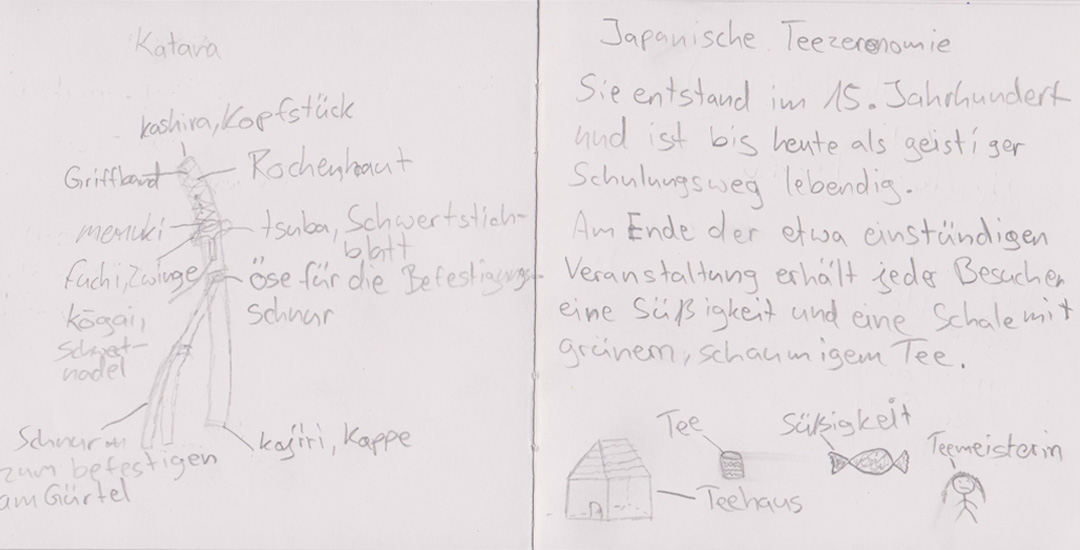 Katava
kashira, Kopfstück
Griffband
Rochenhaut
menuki
tsuba, Schwertstich-
blatt
fuchi, Zwinge
öse für die Befestigungs-
schnur
kōgai,
Schwert-
nadel
Schnur
zum befestigen
am Gürtel
kojiri, Kappe
Japanische Teezeromomie
Sie entstand im 15. Jahrhundert
und ist bis heute als geistiger
Schulungsweg lebendig.
Am Ende der etwa einstündigen
Veranstaltung erhält jeder Besucher
eine Süßigkeit und eine Schale mit
grünem, schaumigem Tee.
Tee
Süßigkeit
Teemeisterin
Teehaus